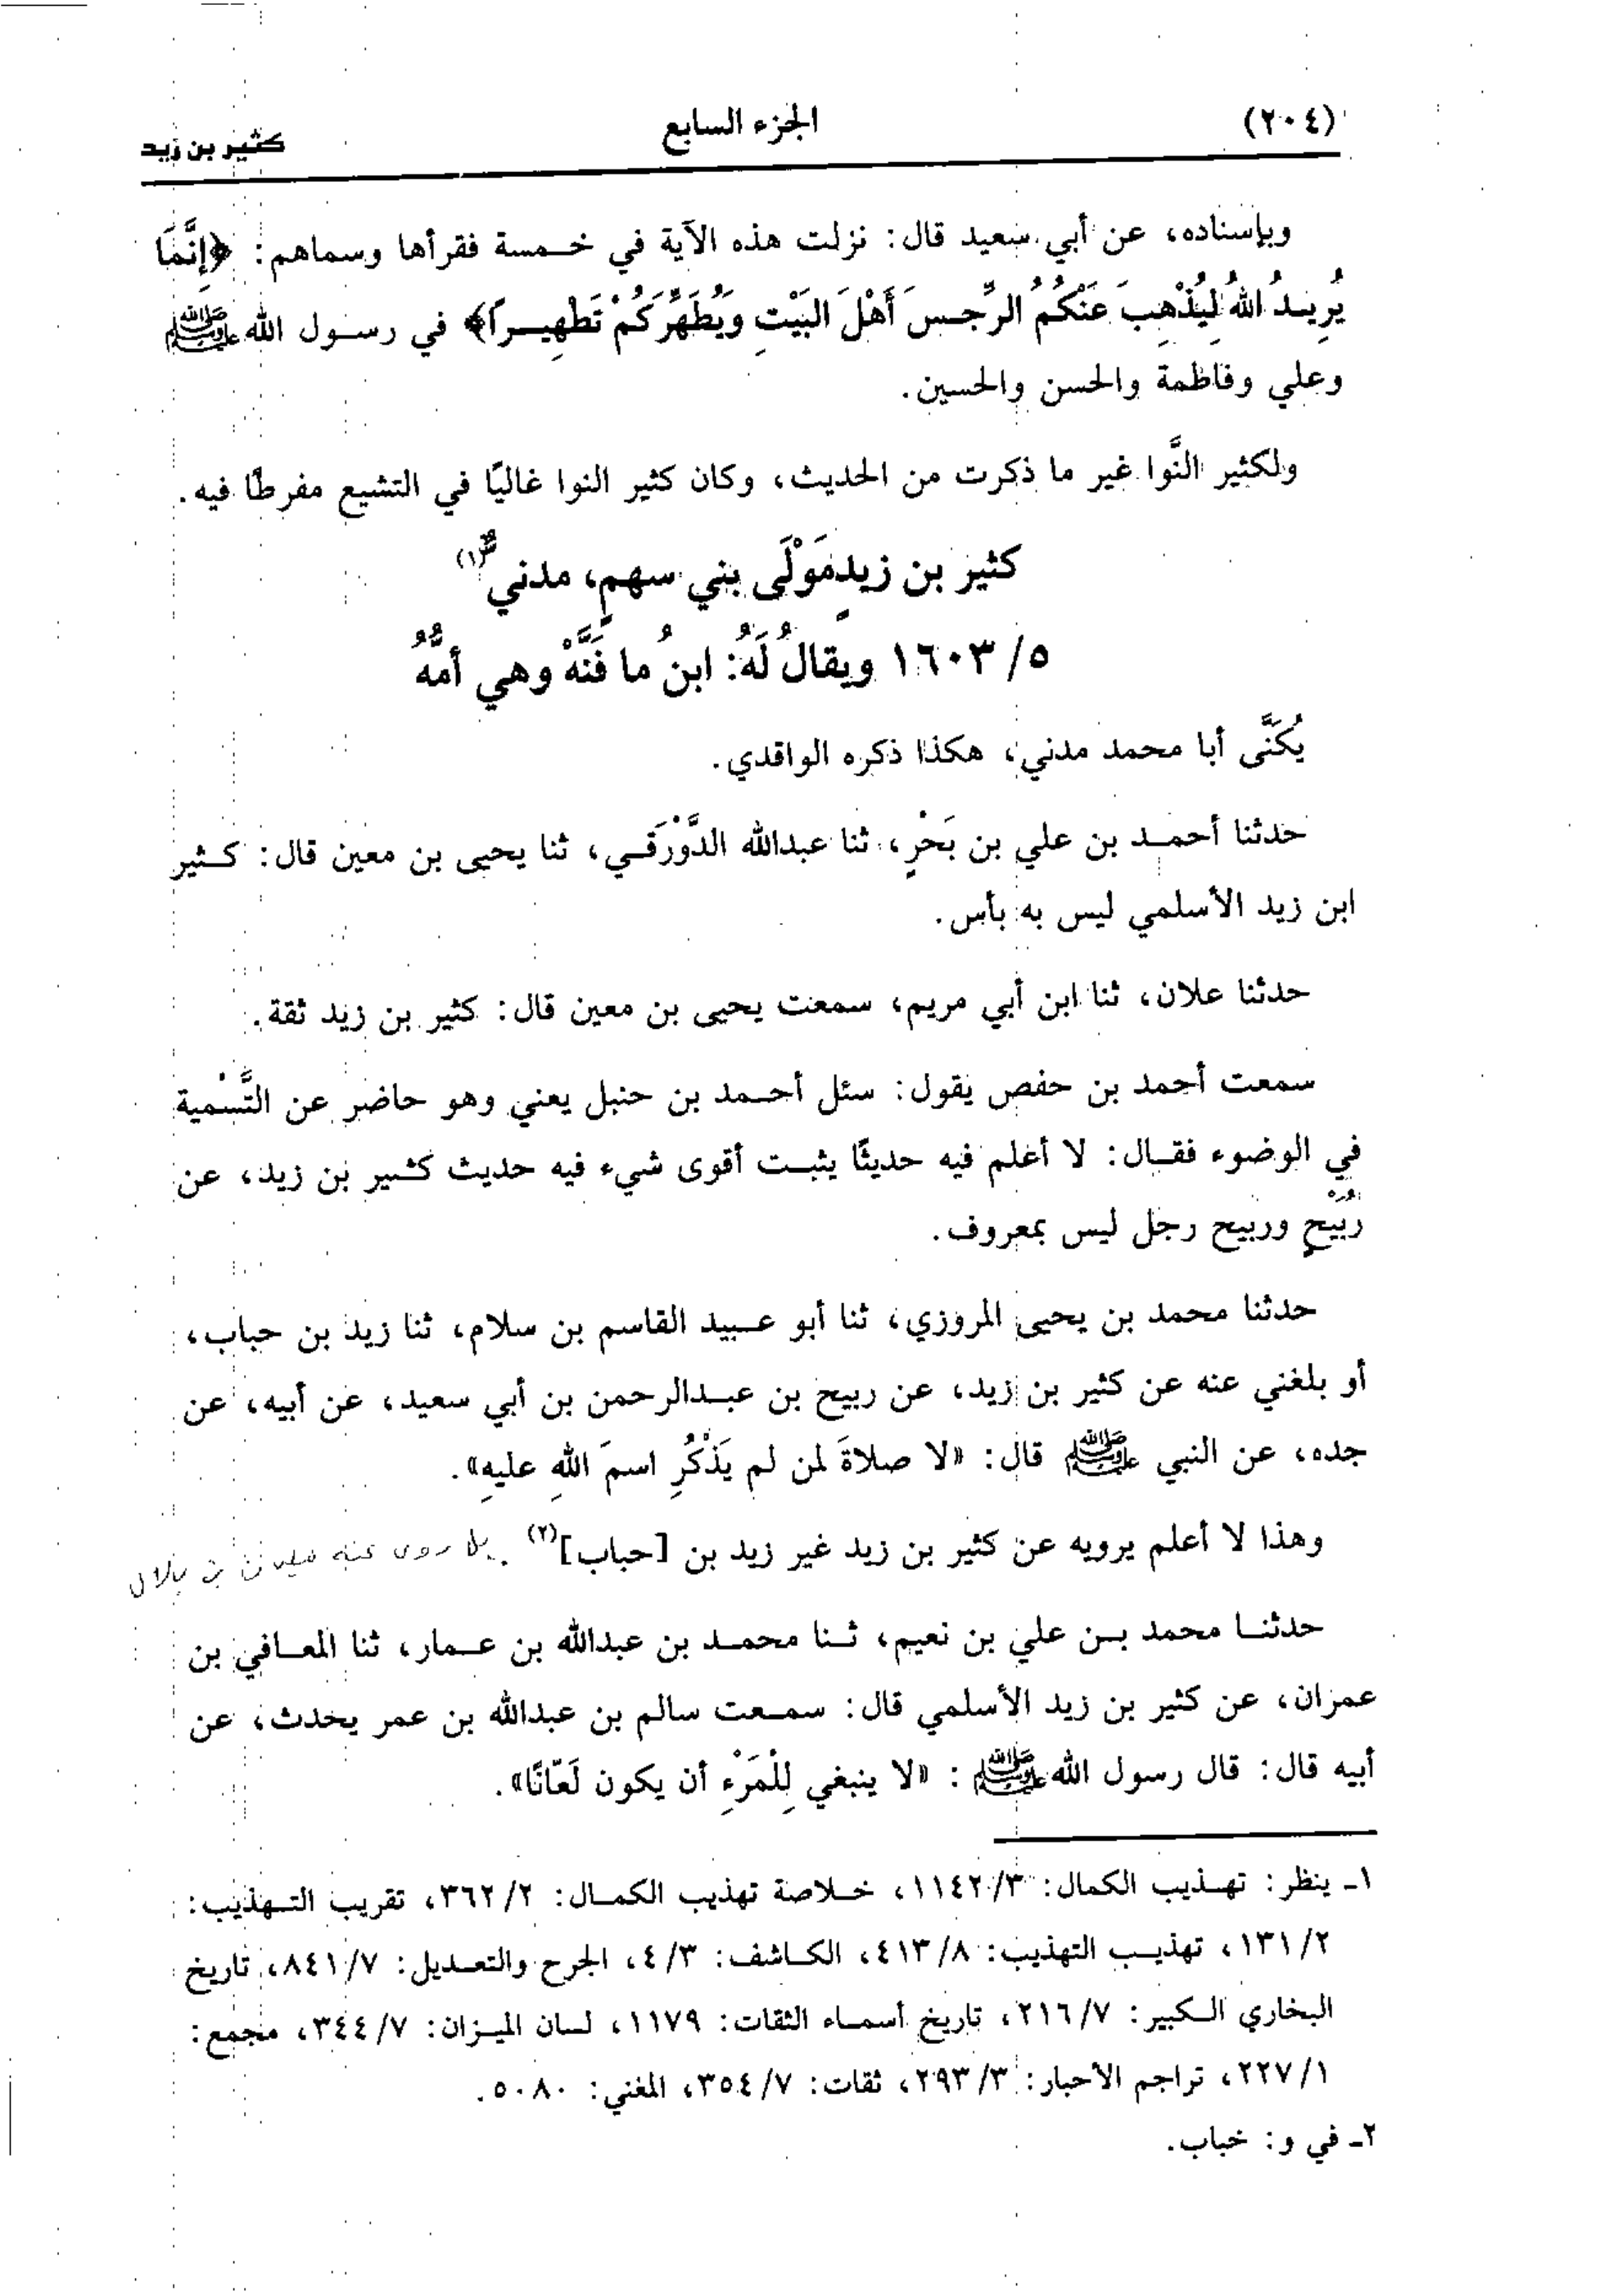 (٢٠٤) الجزء السابع كثير بن زيد
وبإسناده، عن أبي سعيد قال: نزلت هذه الآية في خمسة فقرأها وسماهم: ﴿إِنَّمَا
يُرِيدُ اللهُ لِيُذْهِبَ عَنْكُمُ الرِّجسَ أَهْلَ البَيْتِ وَيُطَهِّرَكُمْ تَطْهِيراً﴾ في رسول الله ﷺ
وعلي وفاطمة والحسن والحسين.
ولكثير النَّوا غير ما ذكرت من الحديث، وكان كثير النوا غاليًا في التشيع مفرطًا فيه.
كثير بن زيدٍ مَوْلَى بني سهمٍ، مدنيٌّ(١)
٥/ ١٦٠٣ ويقالُ لَهُ: ابنُ ما فَنَّهْ وهي أمُّهُ
يُكَنَّى أبا محمد مدني، هكذا ذكره الواقدي.
حدثنا أحمد بن علي بن بَحْرٍ، ثنا عبدالله الدَّوْرَقي، ثنا يحيى بن معين قال: كثير
ابن زيد الأسلمي ليس به بأس.
حدثنا علان، ثنا ابن أبي مريم، سمعت يحيى بن معين قال: كثير بن زيد ثقة.
سمعت أحمد بن حفص يقول: سئل أحمد بن حنبل يعني وهو حاضر عن التَّسْمية
في الوضوء فقال: لا أعلم فيه حديثًا يثبت أقوى شيء فيه حديث كثير بن زيد، عن
رُبَيْحٍ وربيح رجل ليس بمعروف.
حدثنا محمد بن يحيى المروزي، ثنا أبو عبيد القاسم بن سلام، ثنا زيد بن حباب،
أو بلغني عنه عن كثير بن زيد، عن ربيح بن عبدالرحمن بن أبي سعيد، عن أبيه، عن
جده، عن النبي ﷺ قال: «لا صلاةَ لمن لم يَذْكُرِ اسمَ اللهِ عليهِ».
وهذا لا أعلم يرويه عن كثير بن زيد غير زيد بن [حباب](٢). روى عنه بن بلال
حدثنا محمد بن علي بن نعيم، ثنا محمد بن عبدالله بن عمار، ثنا المعافي بن
عمران، عن كثير بن زيد الأسلمي قال: سمعت سالم بن عبدالله بن عمر يحدث، عن
أبيه قال: قال رسول الله ﷺ : «لا ينبغي لِلْمَرْءِ أن يكون لَعّانًا».
١ـ ينظر: تهذيب الكمال: ١١٤٢/٣، خلاصة تهذيب الكمال: ٣٦٢/٢، تقريب التهذيب:
١٣١/٢، تهذيب التهذيب: ٤١٣/٨، الكاشف: ٤/٣، الجرح والتعديل: ٨٤١/٧، تاريخ
البخاري الكبير: ٢١٦/٧، تاريخ أسماء الثقات: ١١٧٩، لسان الميزان: ٣٤٤/٧، مجمع:
٢٢٧/١، تراجم الأحبار: ٢٩٣/٣، ثقات: ٣٥٤/٧، المغني: ٥٠٨٠.
٢ـ في و: خباب.